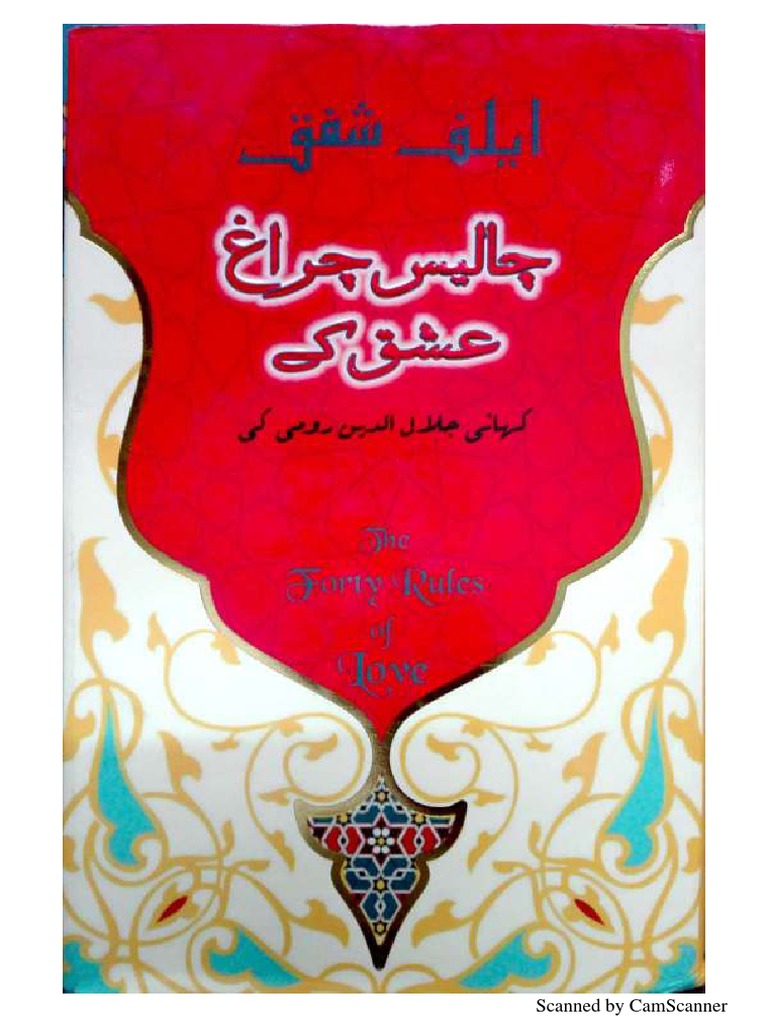 ایلف شفق
چالیس چراغ
عشق کے
کہانی جلال الدین رومی کی
The
Forty Rules
of
Love
Scanned by CamScanner